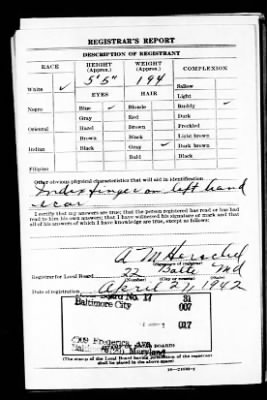 REGISTRAR'S REPORT
DESCRIPTION OF REGISTRANT
RACE HEIGHT (Approx.) WEIGHT (Approx.) COMPLEXION
5' 5" 194
White ✓ Sallow
EYES HAIR Light
Negro Blue ✓ Blonde Ruddy ✓
Gray Red Dark
Oriental Hazel Brown Freckled
Brown Black Light brown
Indian Black Gray ✓ Dark brown
Bald Black
Filipino
Other obvious physical characteristics that will aid in identification
Index finger on left hand
scar
I certify that my answers are true; that the person registered has read or has had
read to him his own answers; that I have witnessed his signature or mark and that
all of his answers of which I have knowledge are true, except as follows:
A M Herschel
(Signature of registrar)
Registrar for Local Board 22 Balto Md
(Number) (City or county) (State)
Date of registration April 27, 1942
Board No. 17 31
Baltimore City 007
017
Frederick Ave.
Maryland
(The stamp of the Local Board having jurisdiction of the registrant
shall be placed in the above space)